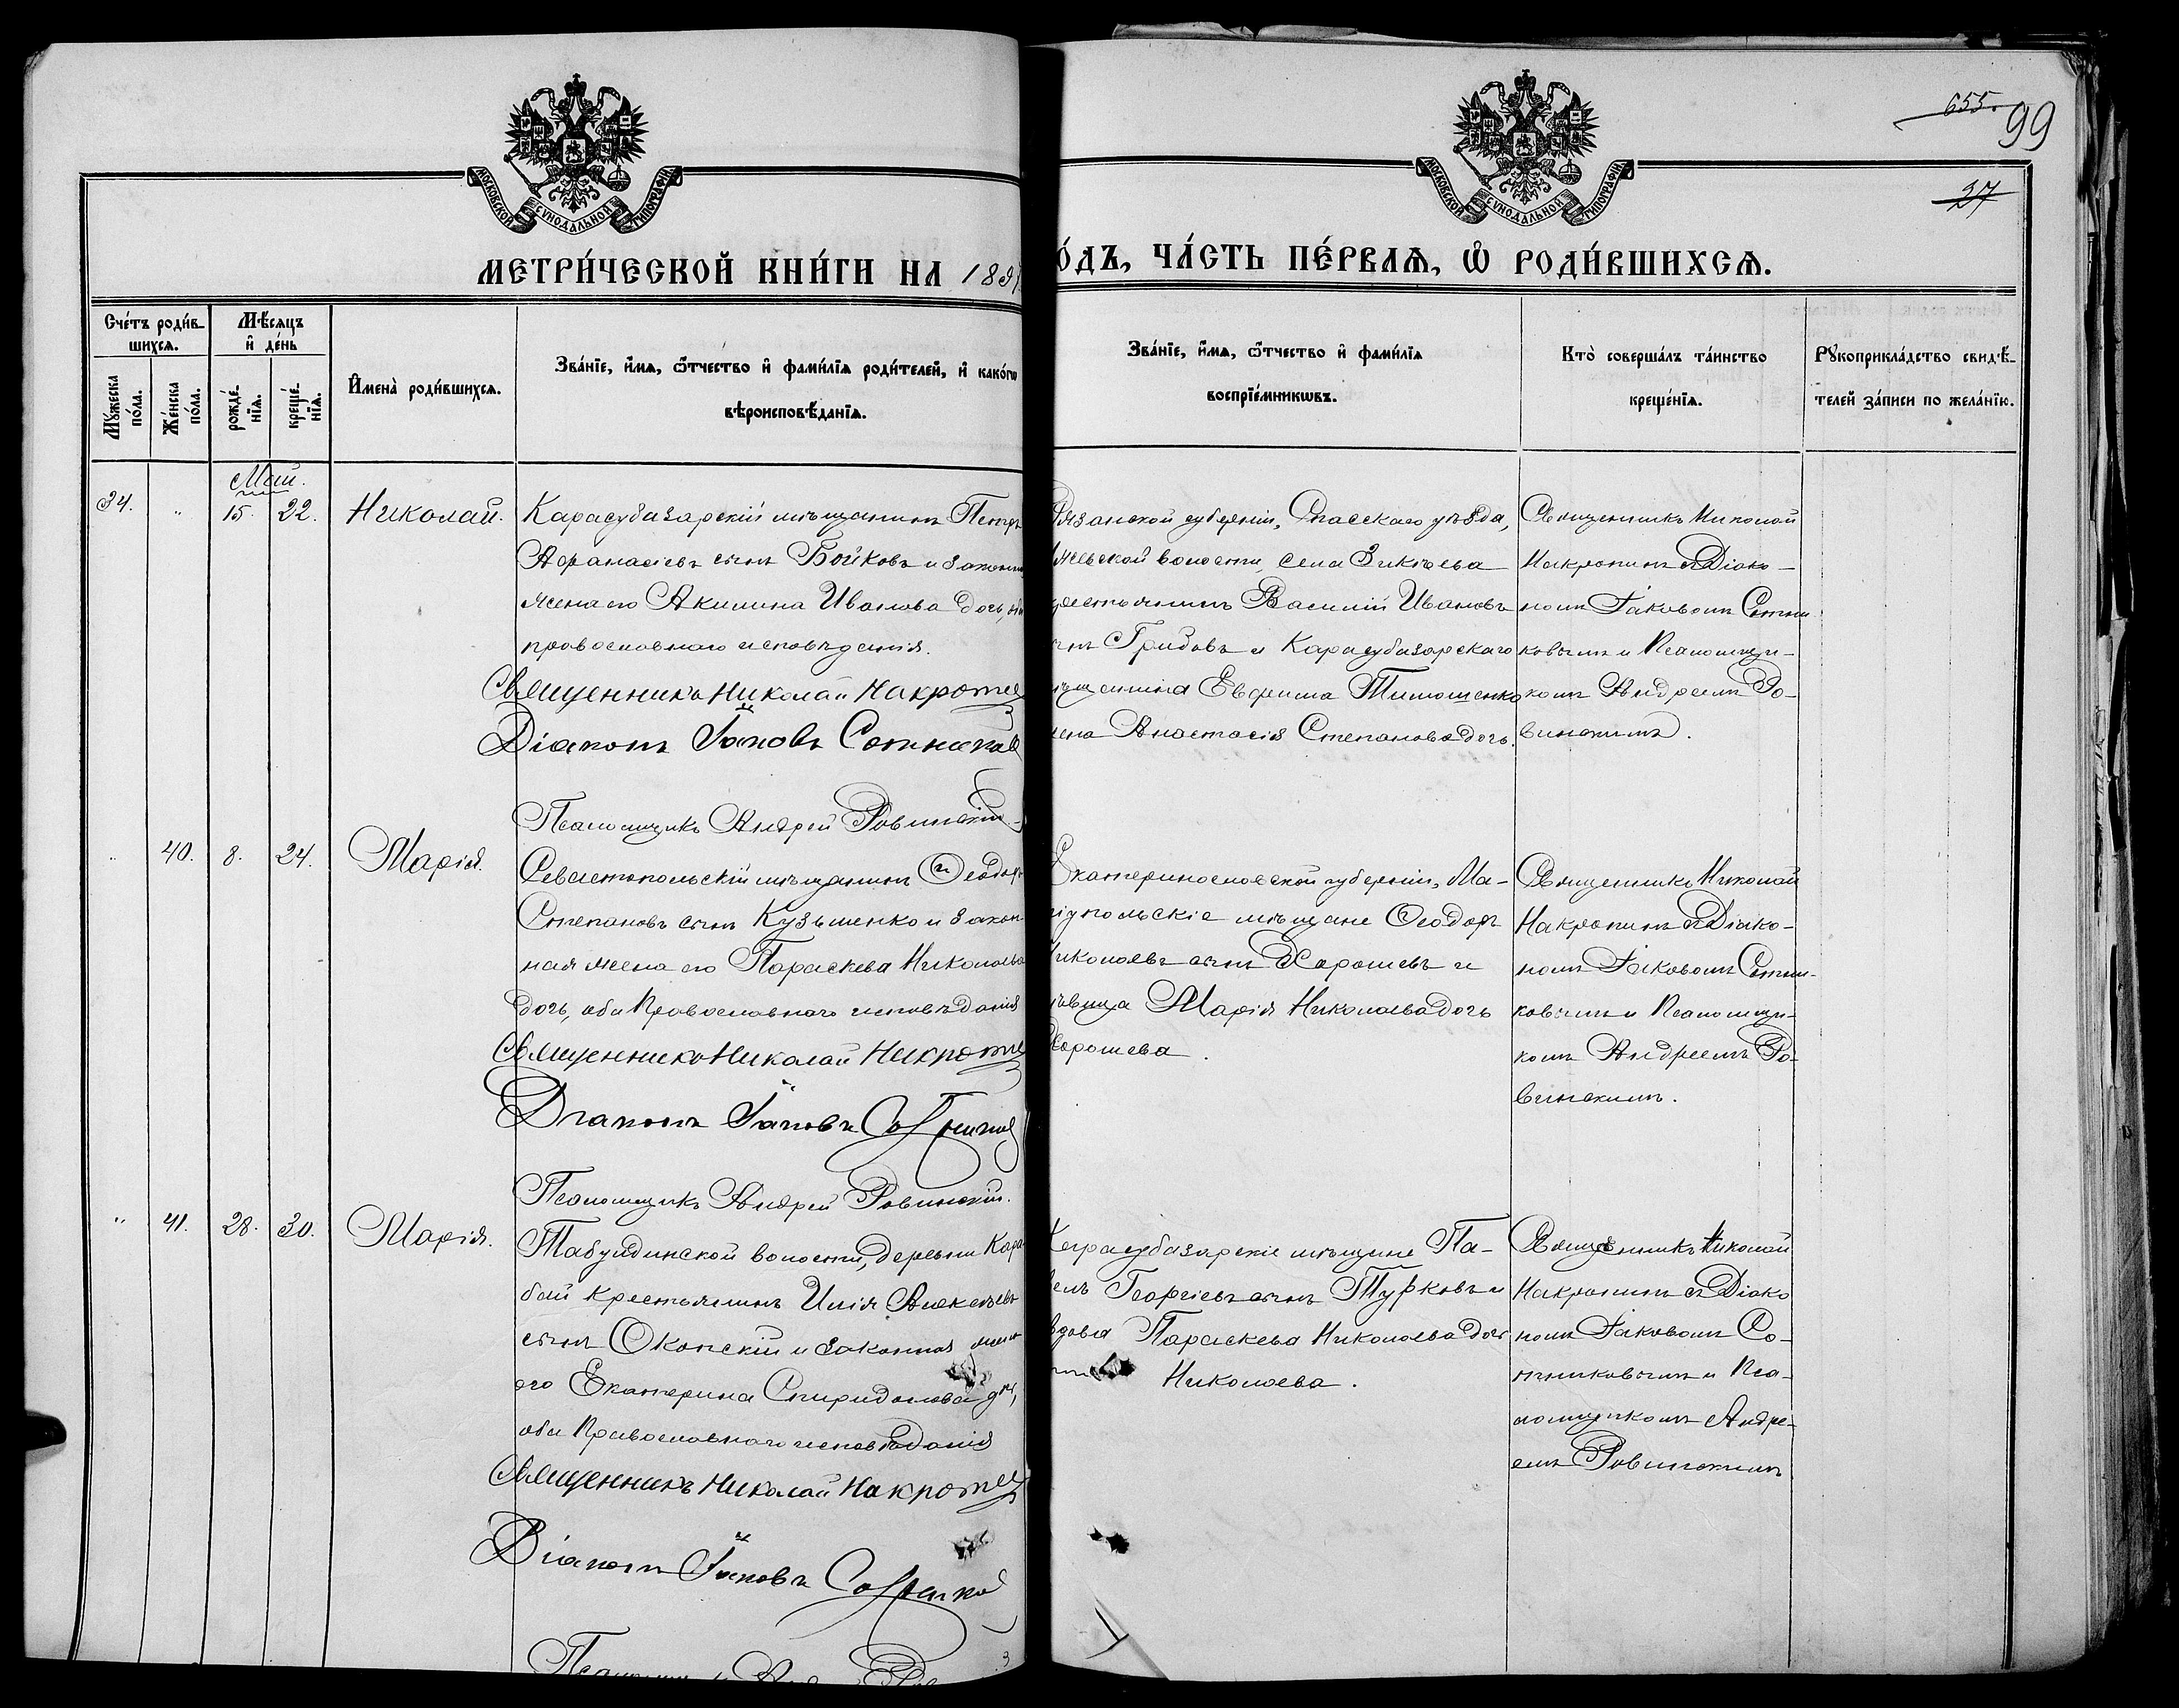 655.
99
27
МОСКОВСКОЙ СѴНОДАЛЬНОЙ ТИПОГРАФІИ
МОСКОВСКОЙ СѴНОДАЛЬНОЙ ТИПОГРАФІИ
МЕТРИ́ЧЕСКОЙ КНИ́ГИ НА 189
ОДЪ, ЧА́СТЬ ПЕ́РВАѦ, Ѡ҆ РОДИ́ВШИХСѦ.
Сче́тъ роди́в-
шихсѧ.
Мꙋ́жеска по́ла.
Же́нска по́ла.
Мѣ́сѧцъ
и҆ де́нь
рожде́-
нїѧ.
креще́-
нїѧ.
И҆мена̀ роди́вшихсѧ.
Зва́нїе, и҆́мѧ, ѻ҆́тчество и҆ фами́лїѧ роди́телей, и҆ како́гѡ
вѣроисповѣ́данїѧ.
Зва́нїе, и҆́мѧ, ѻ҆́тчество и҆ фами́лїѧ
воспрїе́мникѡвъ.
Кто̀ соверша́лъ та́инство
креще́нїѧ.
Рꙋкоприкла́дство свидѣ́-
телей за́писи по жела́нїю.
Май.
34. " 15. 22. Николай.
Карасубазарскій мѣщанинъ Петръ
Афанасіевъ сынъ Бойковъ и законн
жена его Акилина Иванова дочь,
православнаго исповѣданія.
Священникъ Николай Накропи
Діаконъ Іаковъ Сотников
Псаломщикъ Андрей Ровинскій
Рязанской губерніи, Спасскаго уѣзда,
волости, села
крестьянинъ Василій Ивановъ
сынъ Гридовъ и Карасубазарскаго
мѣщанина Евфима Тимошенко
жена Анастасія Степанова дочь.
Священникъ Николай
Накропинъ съ Діако-
номъ Іаковомъ Сотни-
ковымъ и Псаломщи-
комъ Андреемъ Ро-
винскимъ.
" 40. 8. 24. Марія.
Севастопольскій мѣщанинъ Ѳеодоръ
Степановъ сынъ Кузьменко и закон
ная жена его Параскева Николаева
дочь, оба Православнаго исповѣданія
Священникъ Николай Накропи
Діаконъ Іаковъ Сотников
Псаломщикъ Андрей Ровинскій.
Екатеринославской губерніи, Ма-
ріупольскіе мѣщане Ѳеодоръ
Николаевъ сынъ Харошевъ и
дѣвица Марія Николаева дочь
Харошева.
Священникъ Николай
Накропинъ съ Діако-
номъ Іаковомъ Сотни-
ковымъ и Псаломщи-
комъ Андреемъ Ро-
винскимъ.
" 41. 28. 30. Марія.
Табулдинской волости, деревни Кара
бай крестьянинъ Илія Алексѣевъ
сынъ Оконскій и законная жена
его Екатерина Спиридонова дочь,
оба Православнаго исповѣданія
Священникъ Николай Накропи
Діаконъ Іаковъ Сотников
Карасубазарскіе мѣщане Па-
велъ Георгіевъ сынъ Турковъ и
вдова Параскева Николаева дочь
Николаева.
Священникъ Николай
Накропинъ съ Діако
номъ Іаковомъ Со-
тниковымъ и Пса-
ломщикомъ Андре-
емъ Ровинскимъ